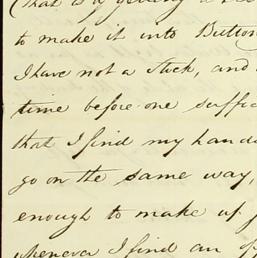 (that is a getting a
to make it into Button
I have not a stock, and
time before one suffic
that I find my hands
go on the same way,
enough to make up
whenever I find an